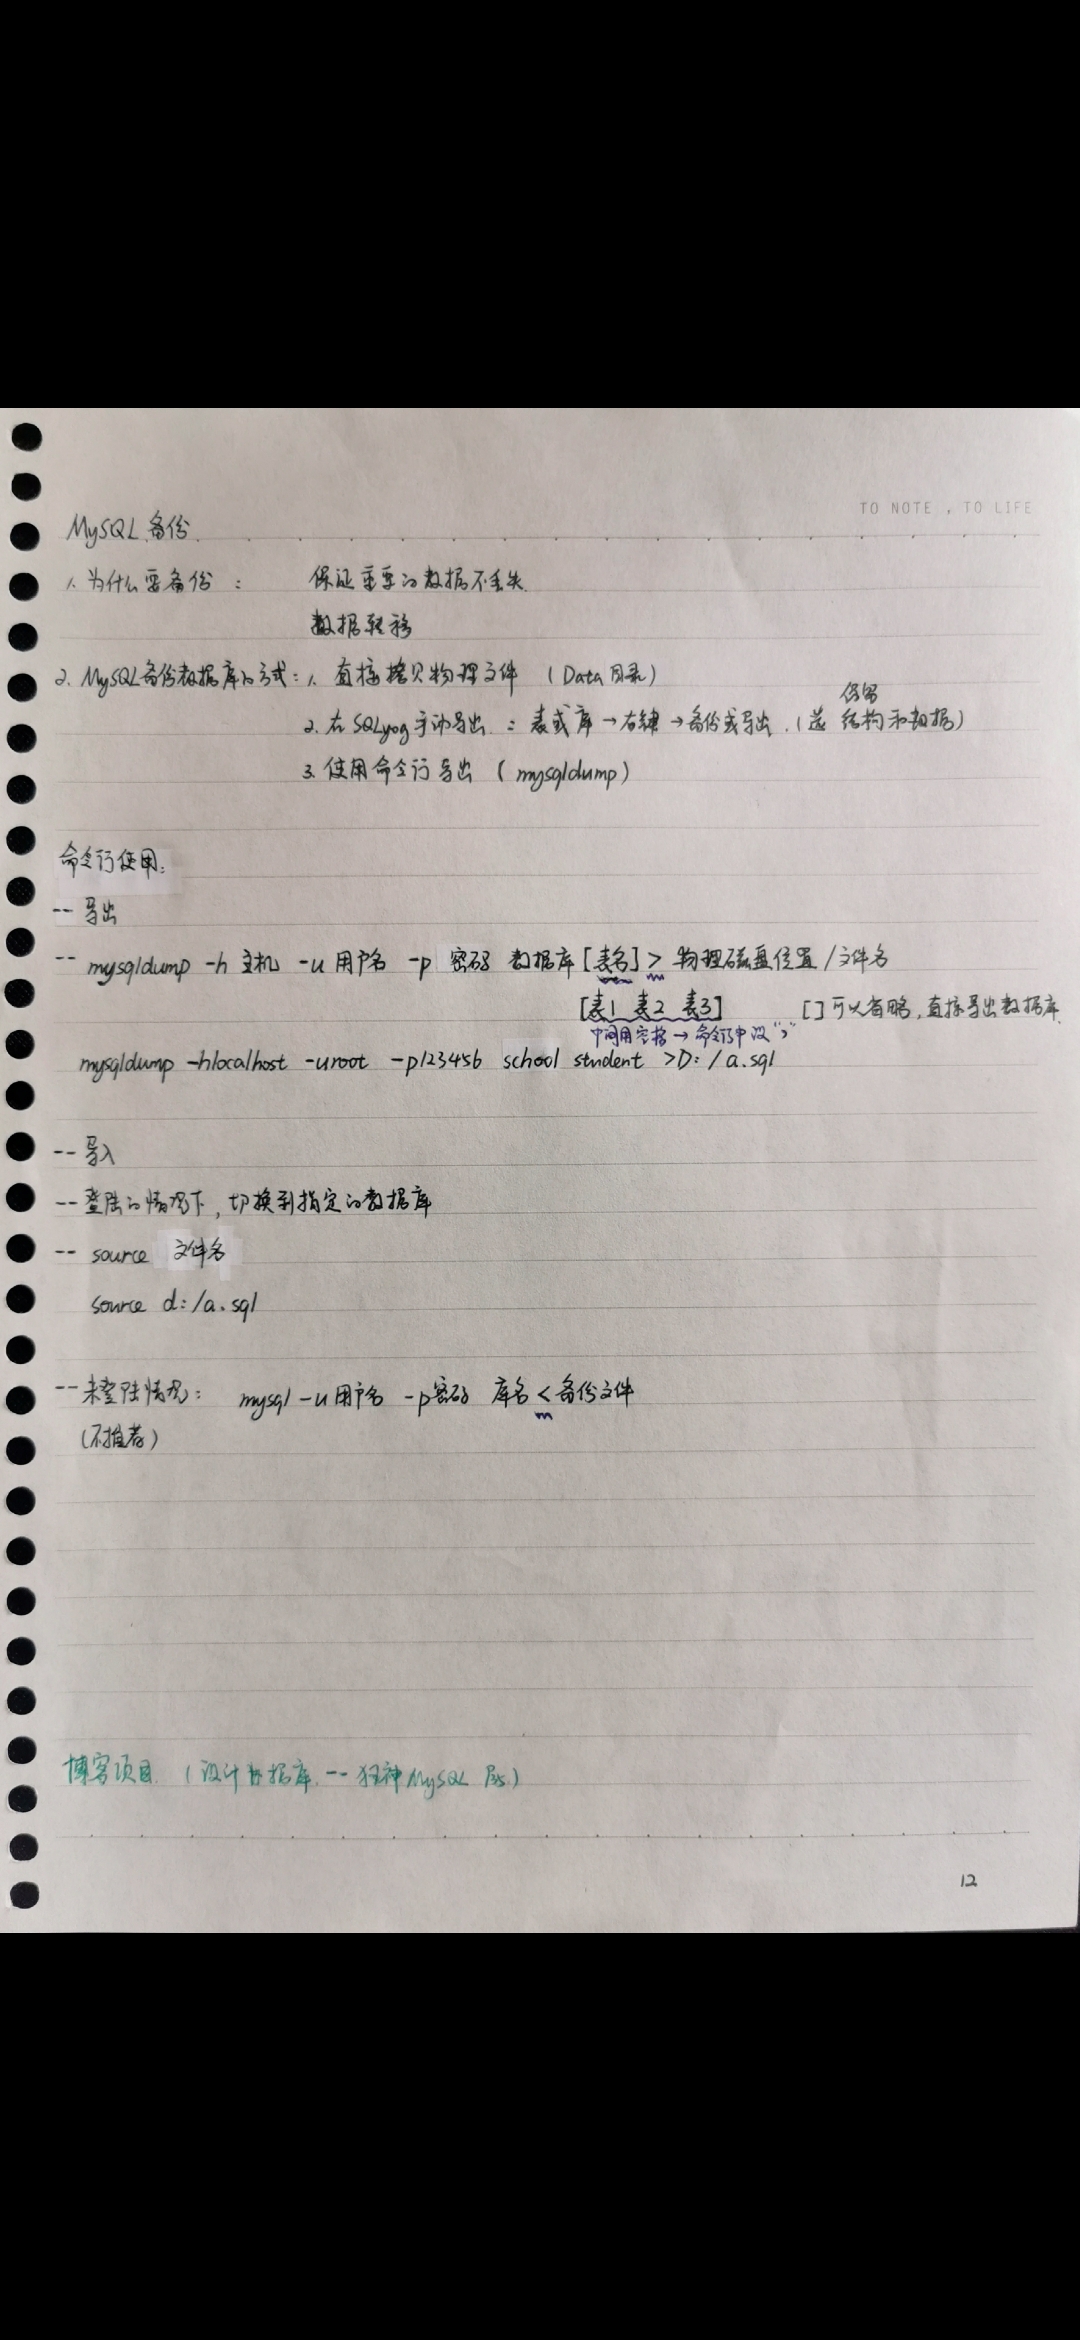 TO NOTE , TO LIFE
MySQL 备份
1. 为什么要备份 : 保证重要的数据不丢失.
数据转移
2. MySQL备份数据库的方式: 1. 直接拷贝物理文件 (Data目录)
2. 在 SQLyog 手动导出 : 表或库 → 右键 → 备份或导出 . (选 结构和数据)
保留
3. 使用命令行导出 ( mysqldump )
命令行使用:
-- 导出
-- mysqldump -h 主机 -u 用户名 -p 密码 数据库 [表名] > 物理磁盘位置 / 文件名
[表1 表2 表3] [ ] 可以省略, 直接导出数据库.
中间用空格 → 命令行中没 ","
mysqldump -hlocalhost -uroot -p123456 school student >D: / a.sql
-- 导入
-- 登陆的情况下, 切换到指定的数据库
-- source 文件名
source d: /a. sql
-- 未登陆情况: mysql -u 用户名 -p密码 库名 < 备份文件
(不推荐)
博客项目. (设计数据库. -- 狂神 MySQL )
12